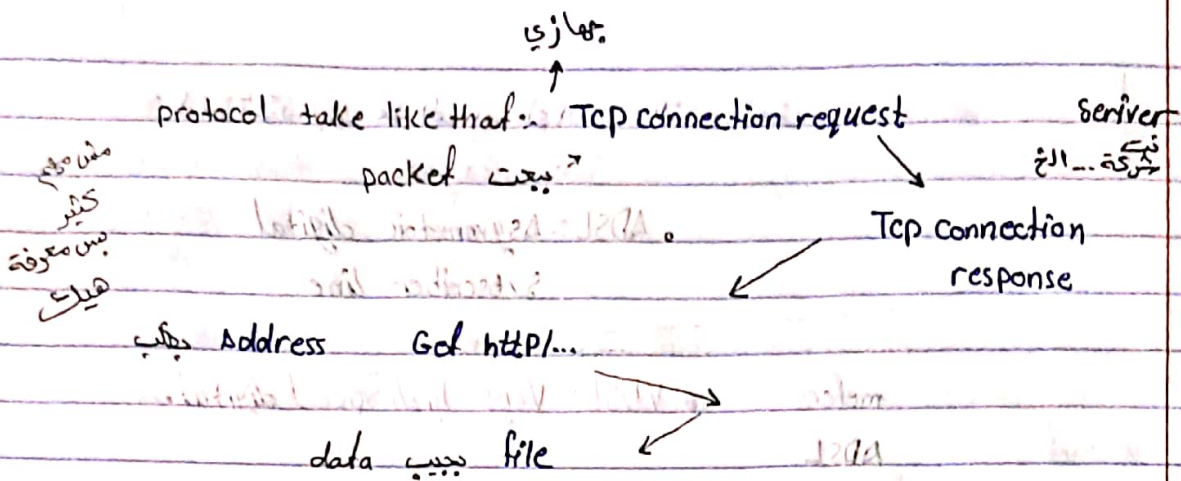 جهازي
protocol take like that:- Tcp connection request
seriver
شركة ... الخ
packet بيعت
Tcp connection
response
مش مهم
كثير
بس معرفة
هيك
بطلب Address Get httP/...
data بجيب file